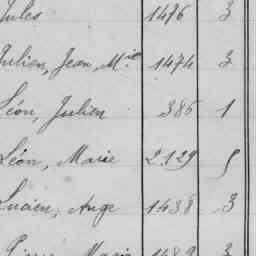 Jules 1476 3
Julien, Jean, M.ie 1474 3
Léon, Julien 386 1
Léon, Marie 2129 5
Lucien, Ange 1438 3
Marie 1489 3